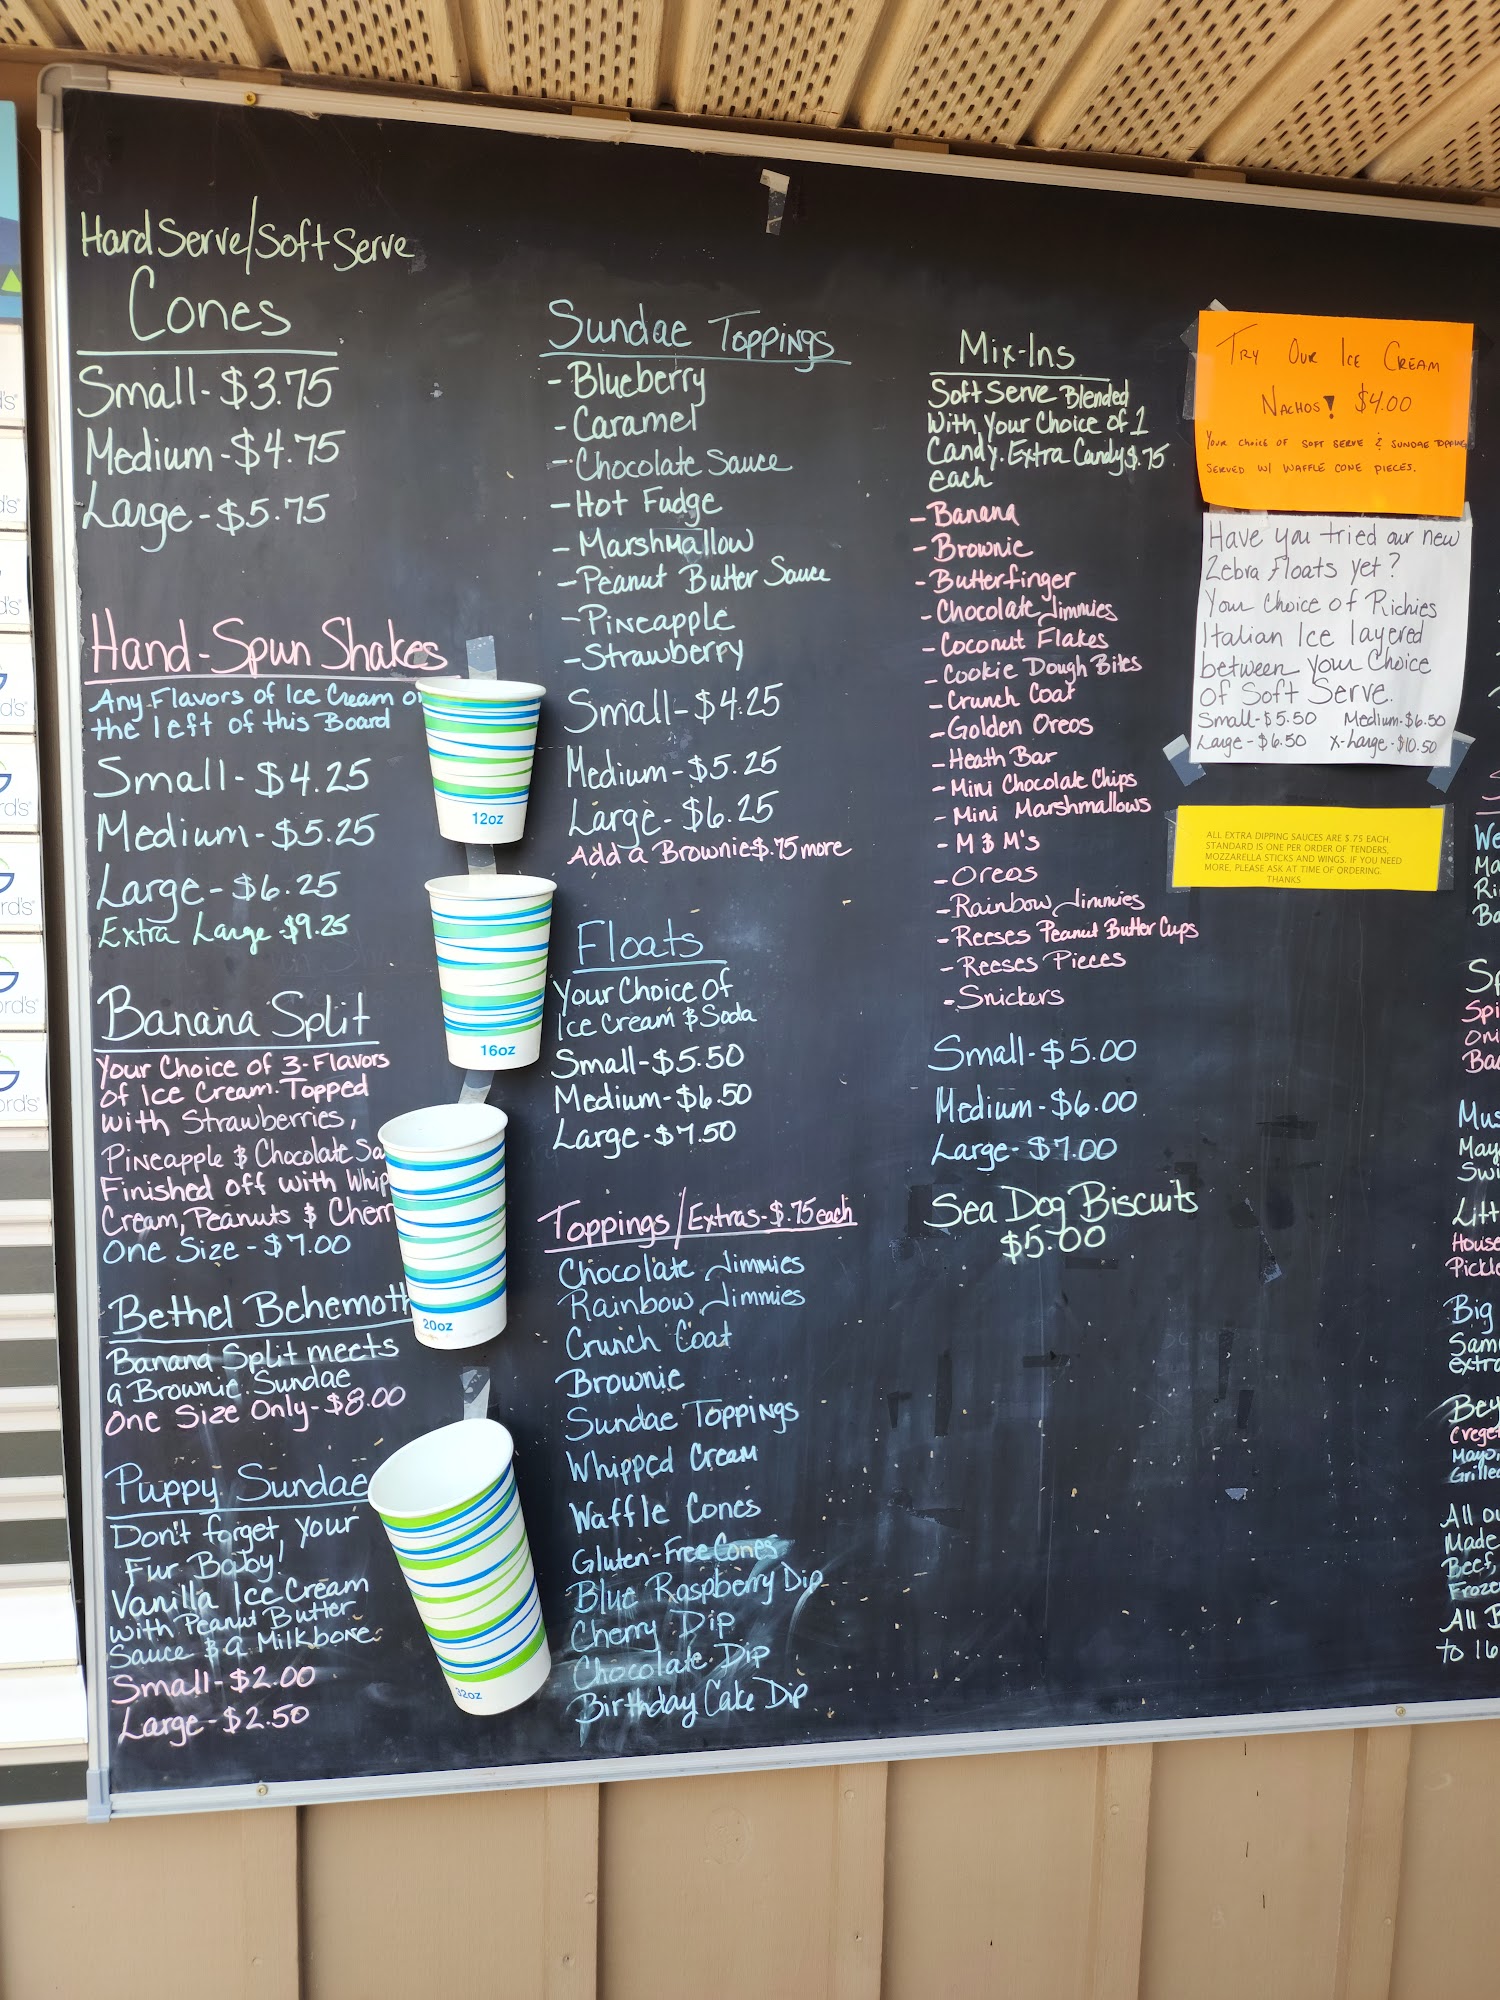 Hard Serve/Soft Serve
Cones
Small - $3.75
Medium - $4.75
Large - $5.75
Hand-Spun Shakes
Any Flavors of Ice Cream
the left of this Board
Small - $4.25
Medium - $5.25
Large - $6.25
Extra Large $9.25
Banana Split
Your Choice of 3-Flavors
of Ice Cream. Topped
with Strawberries,
Pineapple & Chocolate Sa
Finished off with Whip
Cream, Peanuts & Cherr
One Size - $7.00
Bethel Behemoth
Banana Split meets
a Brownie Sundae
One Size Only - $8.00
Puppy Sundae
Don't forget, your
Fur Baby!
Vanilla Ice Cream
with Peanut Butter
Sauce & a Milkbone
Small - $2.00
Large - $2.50
12oz
16oz
20oz
32oz
Sundae Toppings
- Blueberry
- Caramel
- Chocolate Sauce
- Hot Fudge
- Marshmallow
- Peanut Butter Sauce
- Pineapple
- Strawberry
Small - $4.25
Medium - $5.25
Large - $6.25
Add a Brownie $.75 more
Floats
Your Choice Of
Ice Cream & Soda
Small - $5.50
Medium - $6.50
Large - $7.50
Toppings/Extras - $.75 each
Chocolate Jimmies
Rainbow Jimmies
Crunch Coat
Brownie
Sundae Toppings
Whipped Cream
Waffle Cones
Gluten-Free Cones
Blue Raspberry Dip
Cherry Dip
Chocolate Dip
Birthday Cake Dip
Mix-Ins
Soft Serve Blended
With Your Choice of 1
Candy. Extra Candy $.75
each
- Banana
- Brownie
- Butterfinger
- Chocolate Jimmies
- Coconut Flakes
- Cookie Dough Bites
- Crunch Coat
- Golden Oreos
- Heath Bar
- Mini Chocolate Chips
- Mini Marshmallows
- M & M's
- Oreos
- Rainbow Jimmies
- Reeses Peanut Butter Cups
- Reeses Pieces
- Snickers
Small - $5.00
Medium - $6.00
Large - $7.00
Sea Dog Biscuits
$5.00
Try Our Ice Cream
Nachos! $4.00
Your choice of soft serve & sundae topping
served w/ waffle cone pieces.
Have you tried our new
Zebra Floats yet?
Your Choice of Richies
Italian Ice layered
between your Choice
of Soft Serve.
Small - $5.50 Medium - $6.50
Large - $6.50 X-Large - $10.50
ALL EXTRA DIPPING SAUCES ARE $.75 EACH.
STANDARD IS ONE PER ORDER OF TENDERS,
MOZZARELLA STICKS AND WINGS. IF YOU NEED
MORE, PLEASE ASK AT TIME OF ORDERING.
THANKS
We
Ma
Ri
Ba
Sp
Spi
Oni
Ba
Mus
May
Swi
Litt
House
Pickle
Big
Sam
extra
Bey
(veget
Mayo
Grilled
All ou
Made
Beef,
Froze
All B
to 16